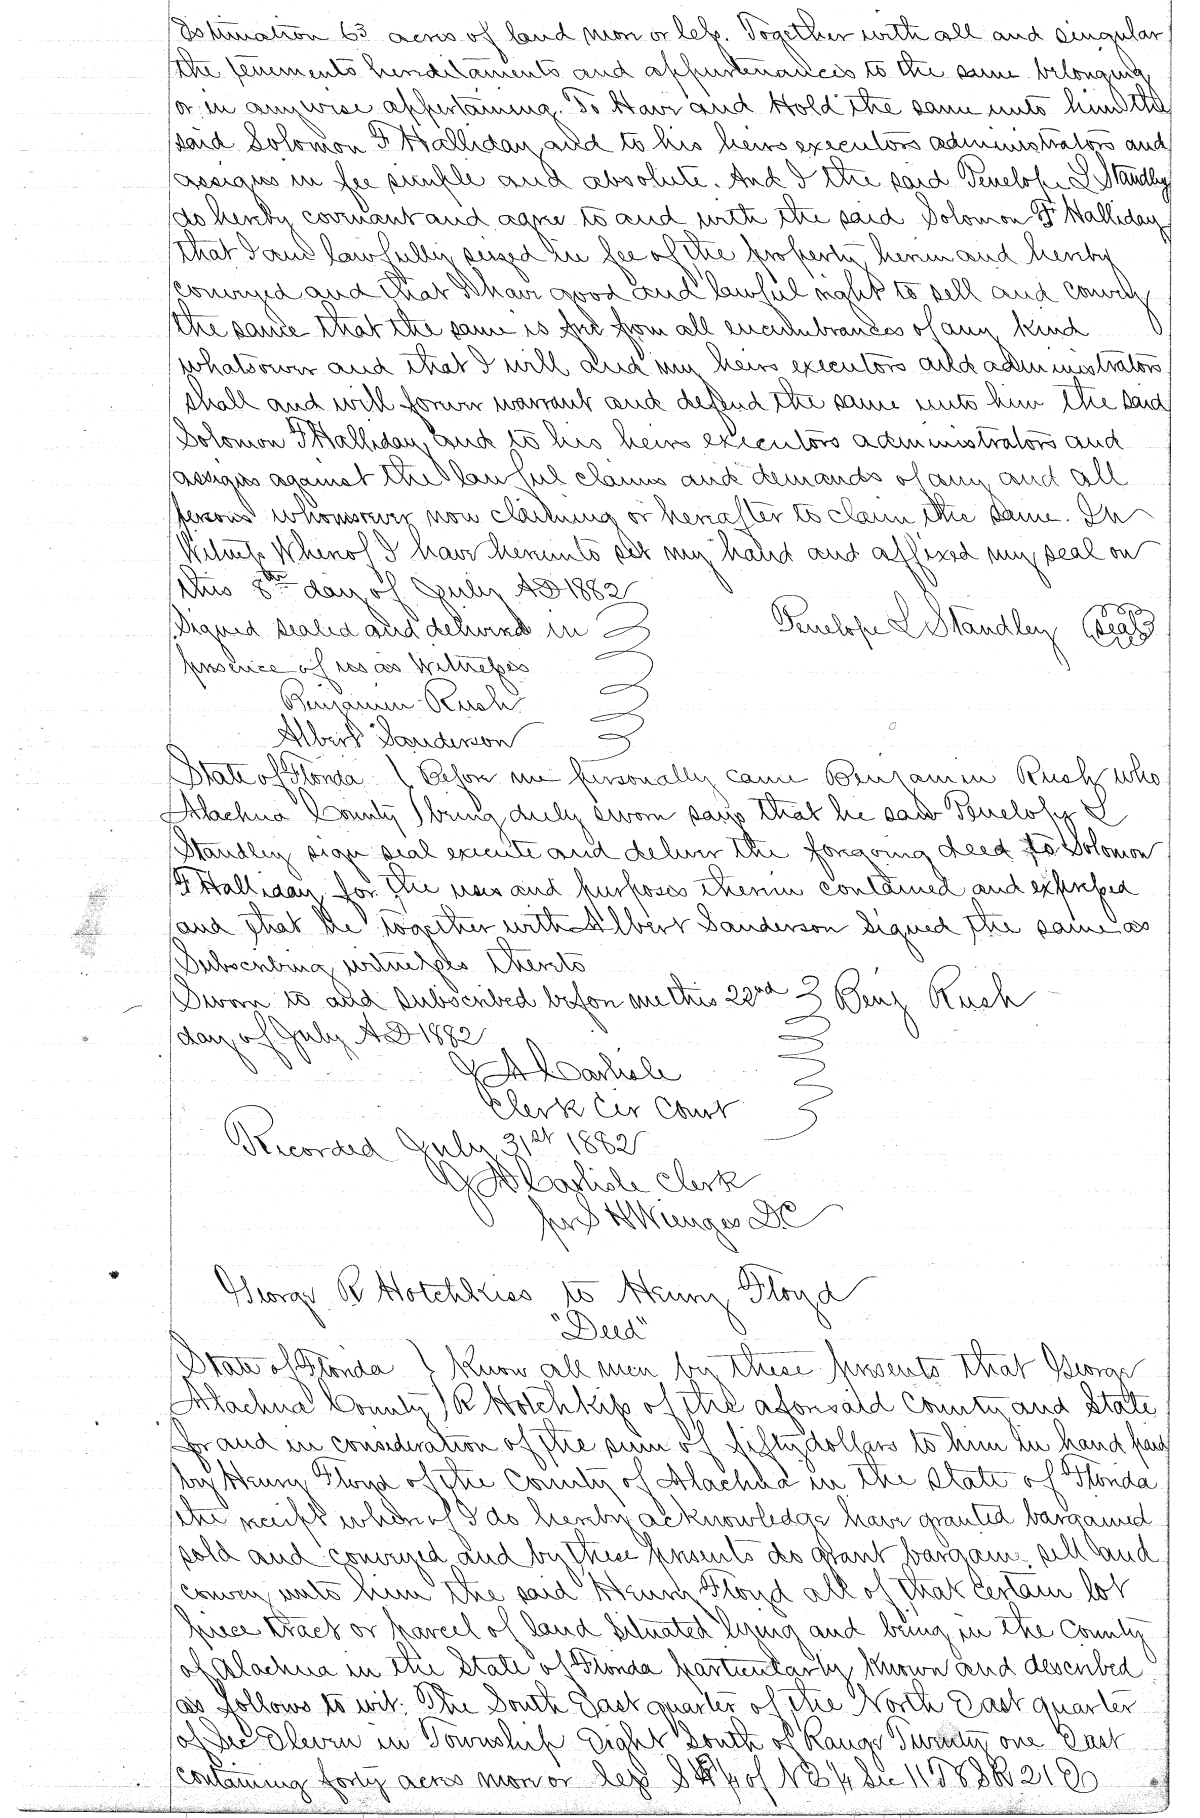 Estimation 63 acres of land more or less. Together with all and singular
the tenements hereditaments and appurtenances to the same belonging
or in anywise appertaining. To Have and Hold the same unto him the
said Solomon F Halliday and to his heirs executors administrators and
assigns in fee simple and absolute. And I the said Penelope L Standley
do hereby covenant and agree to and with the said Solomon F Halliday
that I am lawfully seized in fee of the property herein and hereby
conveyed and that I have good and lawful right to sell and convey
the same that the same is free from all encumbrances of any kind
whatsoever and that I will and my heirs executors and administrators
shall and will forever warrant and defend the same unto him the said
Solomon F Halliday and to his heirs executors administrators and
assigns against the lawful claims and demands of any and all
persons whomsoever now claiming or hereafter to claim the same. In
Witness Whereof I have hereunto set my hand and affixed my seal on
this 8th day of July AD 1882
Signed sealed and delivered in Penelope L Standley (seal)
presence of us as Witnesses
Benjamin Rush
Albert Sanderson
State of Florida } Before me personally came Benjamin Rush who
Alachua County } being duly sworn says that he saw Penelope L
Standley sign seal execute and deliver the foregoing deed to Solomon
F Halliday for the uses and purposes therein contained and expressed
and that he together with Albert Sanderson signed the same as
Subscribing witnesses thereto
Sworn to and subscribed before me this 22nd } Benj Rush
day of July AD 1882
J A Carlisle
Clerk Cir Court
Recorded July 31st 1882
J A Carlisle Clerk
per S H Wienges DC
George R Hotchkiss to Henry Floyd
"Deed"
State of Florida } Know all men by these presents that George
Alachua County } R Hotchkiss of the aforesaid County and State
for and in consideration of the sum of fifty dollars to him in hand paid
by Henry Floyd of the County of Alachua in the State of Florida
the receipt whereof I do hereby acknowledge have granted bargained
sold and conveyed and by these presents do grant bargain sell and
convey unto him the said Henry Floyd all of that certain lot
piece tract or parcel of land situated lying and being in the County
of Alachua in the State of Florida particularly known and described
as follows to wit: The South East quarter of the North East quarter
of Sec Eleven in Township Eight South of Range Twenty one East
containing forty acres more or less SE 1/4 of NE 1/4 Sec 11 T 8 S R 21 E